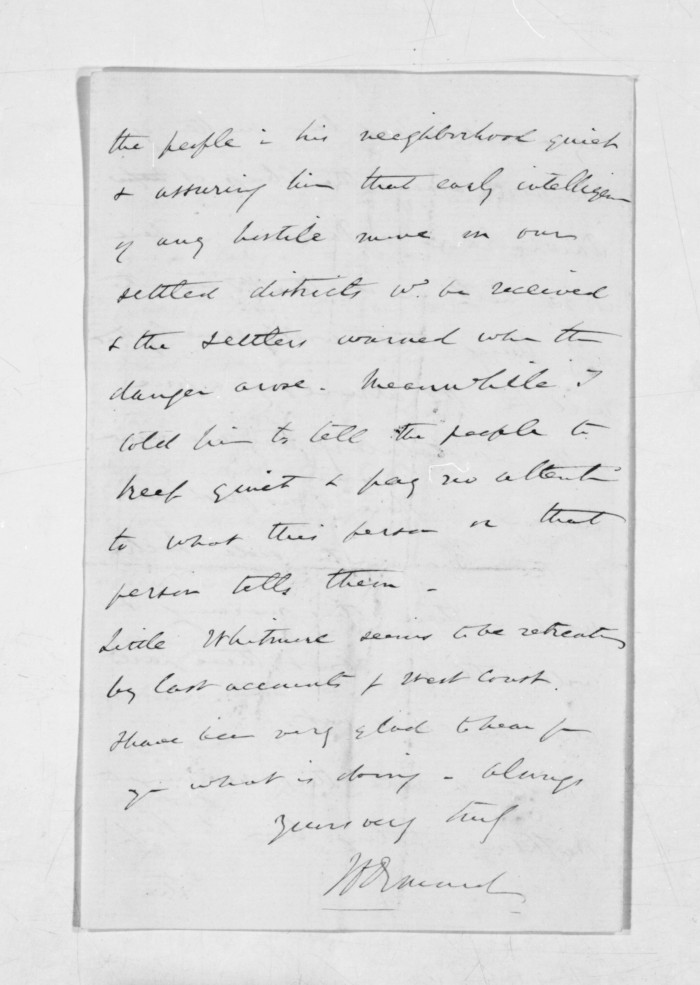 the people in his neighborhood quiet
& assuring him that early intelligence
of any hostile move in our
settled districts wd. be received
& the settlers warned when the
danger arose - Meanwhile I
told him to tell the people to
keep quiet & pay no attention
to what this person or that
person tells them -
Little Whitmore seems to be retreating
by last accounts f West Coast.
I have been very glad to hear fm
yu what is doing - Always
Yours very truly